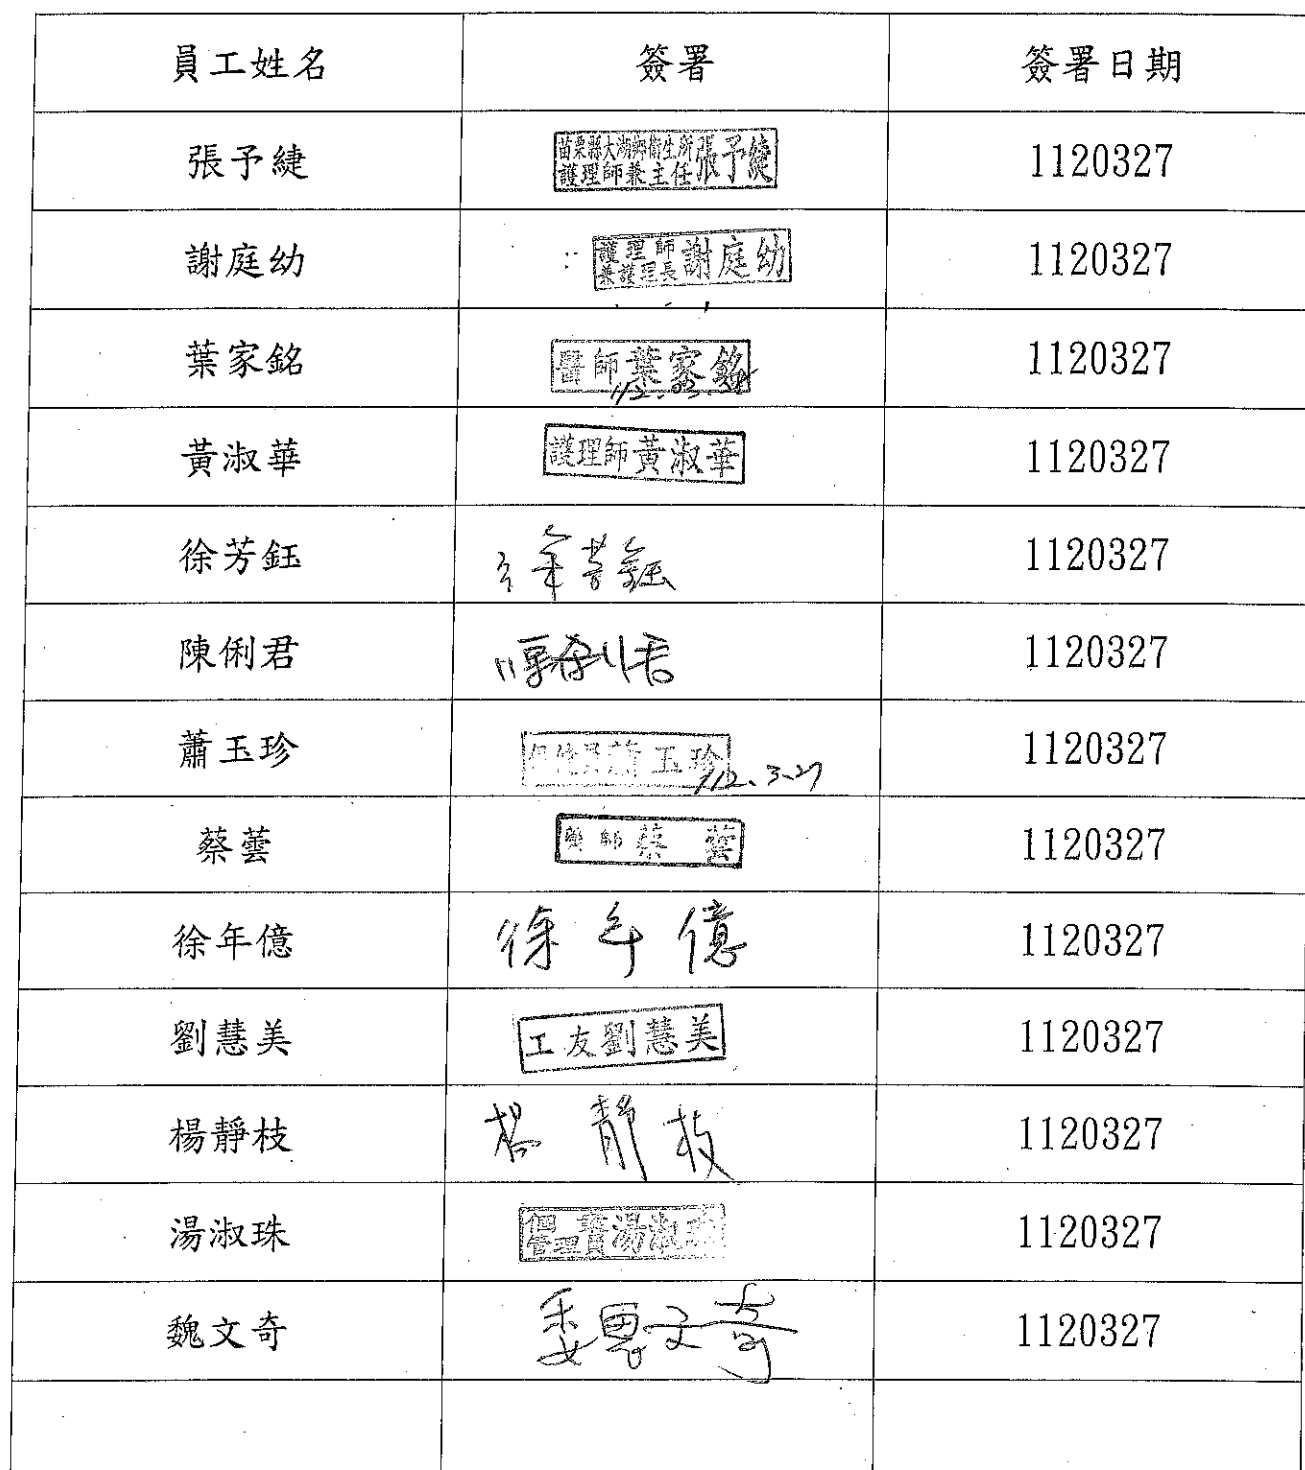 員工姓名 簽署 簽署日期
張予緁 苗栗縣大湖鄉衛生所 護理師兼主任 張予緁 1120327
謝庭幼 護理師 兼護理長 謝庭幼 1120327
葉家銘 醫師葉家銘 112.03. 1120327
黃淑華 護理師黃淑華 1120327
徐芳鈺 徐芳鈺 1120327
陳俐君 陳俐君 1120327
蕭玉珍 蕭玉珍 112.3.27 1120327
蔡蕓 師蔡蕓 1120327
徐年億 徐年億 1120327
劉慧美 工友劉慧美 1120327
楊靜枝 楊靜枝 1120327
湯淑珠 個案管理員湯淑珠 1120327
魏文奇 魏文奇 1120327